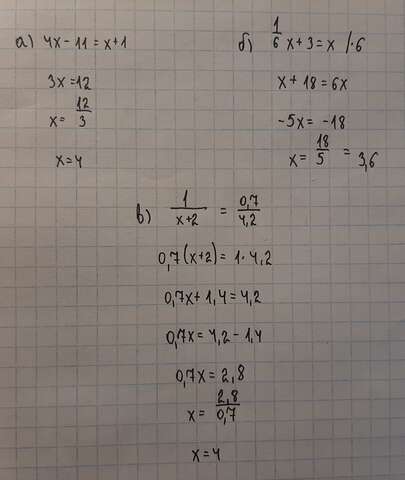 а) 4x - 11 = x + 1
3x = 12
x = 12/3
x = 4
б) 1/6 x + 3 = x /·6
x + 18 = 6x
-5x = -18
x = 18/5 = 3,6
в) 1/(x+2) = 0,7/4,2
0,7(x+2) = 1·4,2
0,7x + 1,4 = 4,2
0,7x = 4,2 - 1,4
0,7x = 2,8
x = 2,8/0,7
x = 4